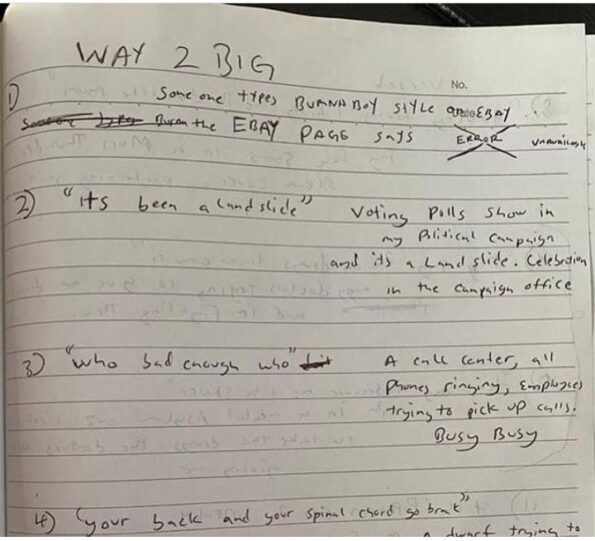 WAY 2 BIG
No.
1) Someone types BURNABOY STYLE on EBAY.
But on the EBAY PAGE says ERROR unavailable
2) "its been a landslide" Voting Polls show in
my Political Campaign
and its a Landslide. Celebration
in the campaign office
3) "who bad enough who" A call center, all
Phones ringing, Employees
trying to pick up calls.
Busy Busy
4) "your back and your spinal chord go break"
a dwarf trying to